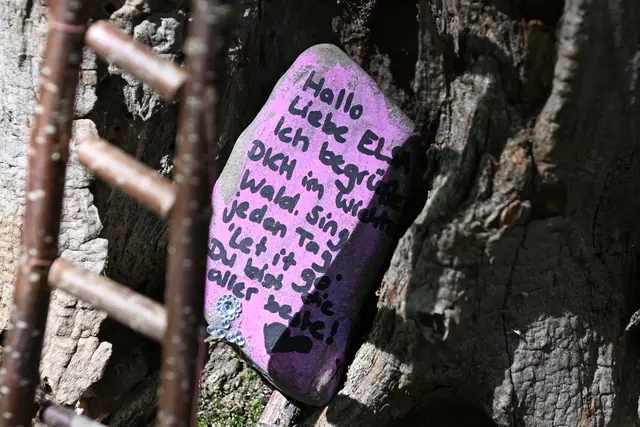 Hallo
Liebe ELLA
Ich begrüße
DICH im Wichtel
Wald. Sing
jeden Tag
"Let it go".
Du bist die
aller beste!